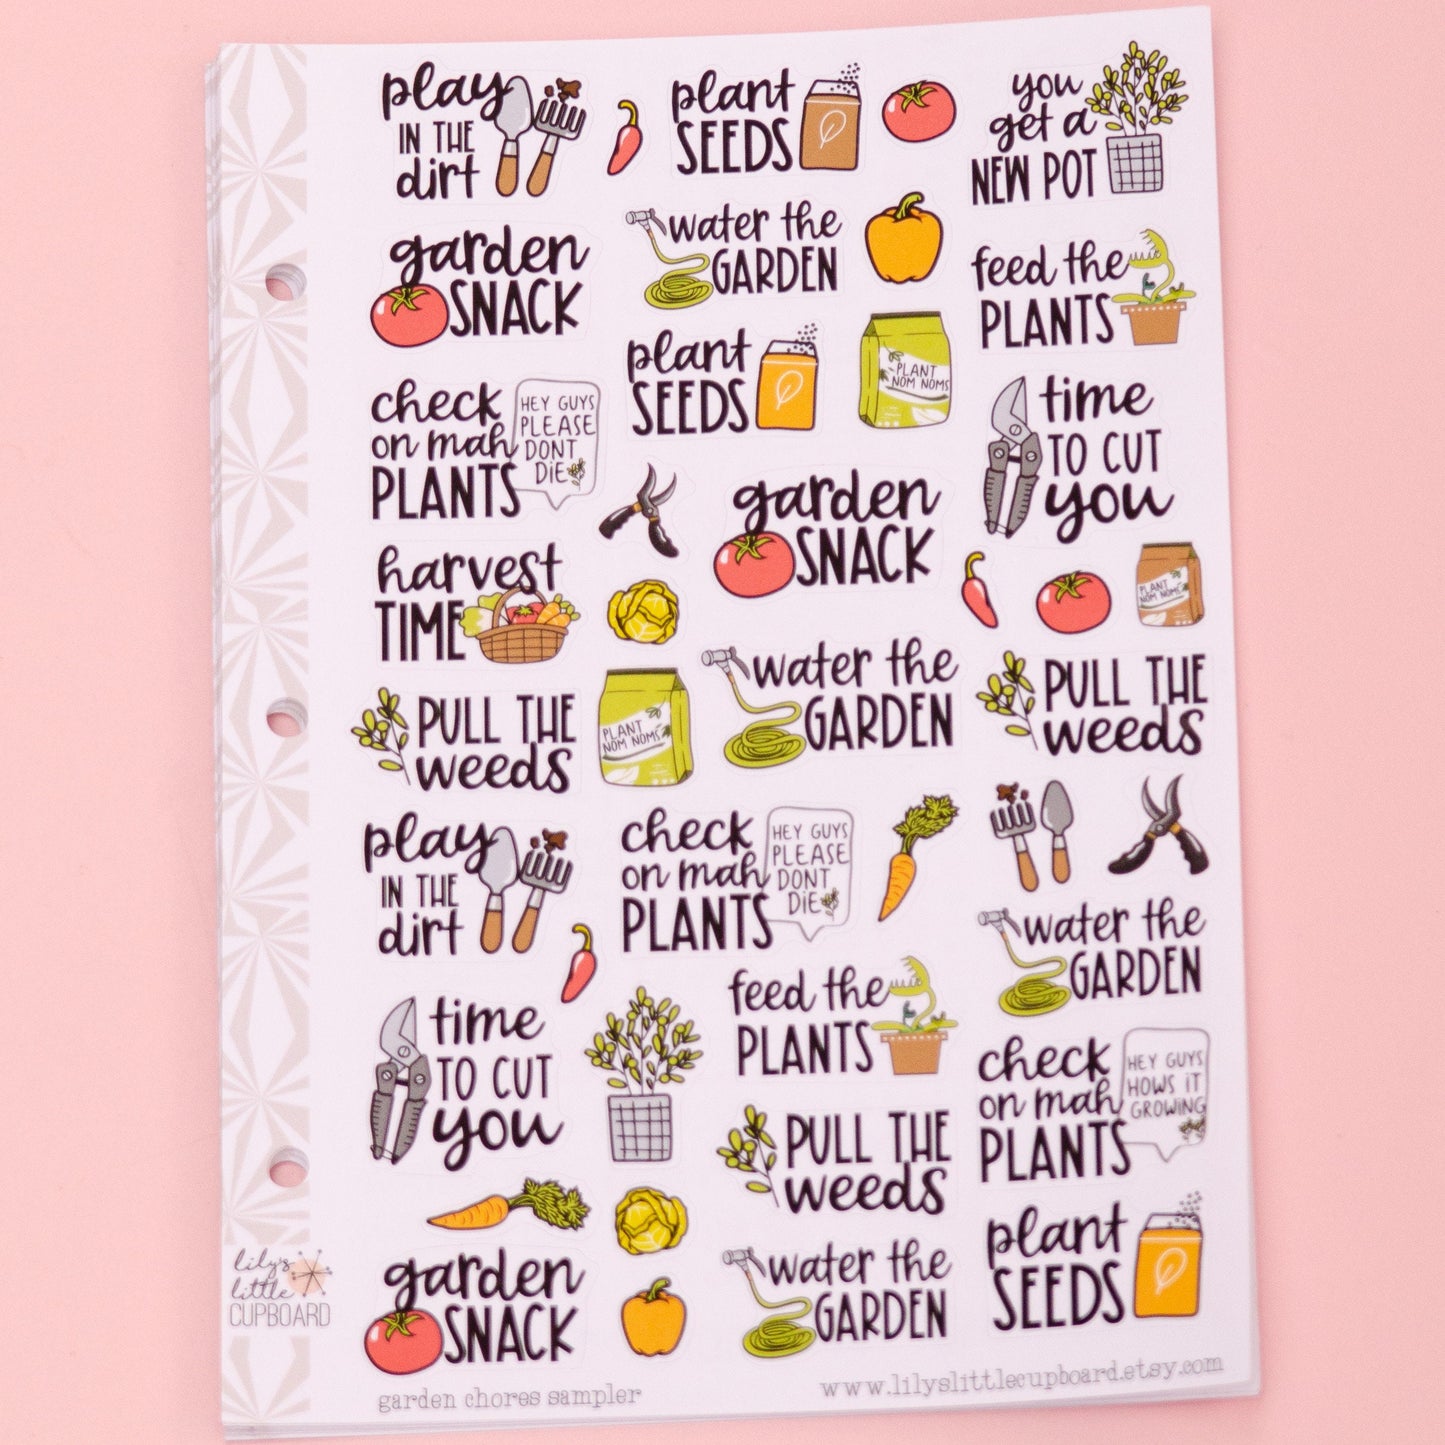 play
IN THE
dirt
plant
SEEDS
you
get a
NEW POT
garden
SNACK
water the
GARDEN
feed the
PLANTS
plant
SEEDS
PLANT
NOM NOMS
check
on mah
PLANTS
HEY GUYS
PLEASE
DONT
DIE
time
TO CUT
you
garden
SNACK
harvest
TIME
PLANT
NOM NOMS
PULL THE
weeds
PLANT
NOM NOMS
water the
GARDEN
PULL THE
weeds
play
IN THE
dirt
check
on mah
PLANTS
HEY GUYS
PLEASE
DONT
DIE
water the
GARDEN
time
TO CUT
you
feed the
PLANTS
check
on mah
PLANTS
HEY GUYS
HOWS IT
GROWING
PULL THE
weeds
plant
SEEDS
garden
SNACK
water the
GARDEN
lily's
little
CUPBOARD
garden chores sampler
www.lilyslittlecupboard.etsy.com